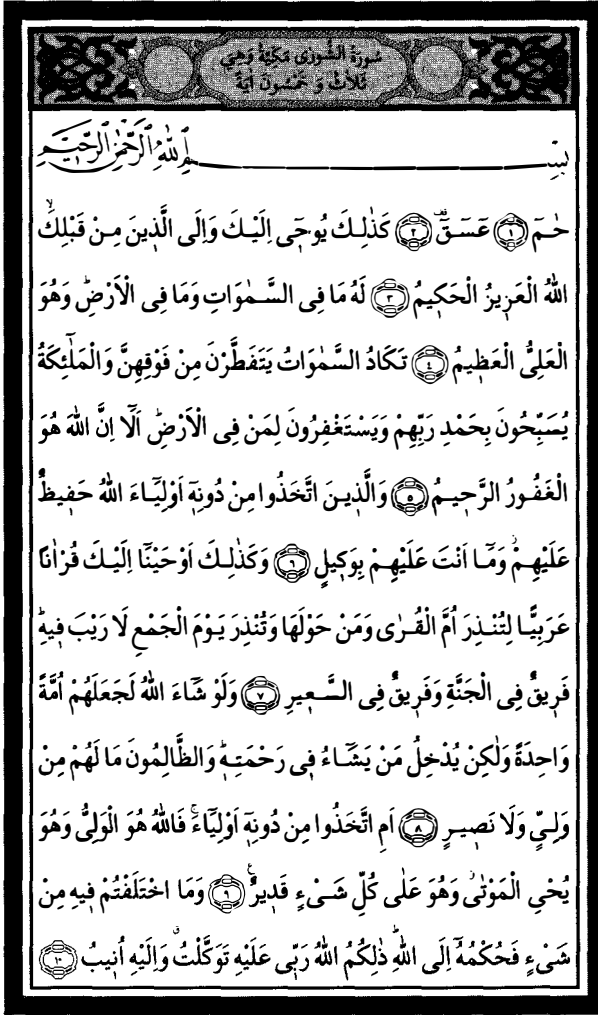 سُورَةُ الشُّورٰى مَكِّيَّةٌ وَهِيَ
ثَلَاثٌ وَ خَمْسُونَ اٰيَةً
بِسْمِ اللّٰهِ الرَّحْمٰنِ الرَّحِيمِ
حٰمٓ ﴿١﴾ عٓسٓقٓ ﴿٢﴾ كَذٰلِكَ يُوحٖٓى اِلَيْكَ وَاِلَى الَّذٖينَ مِنْ قَبْلِكَۙ
اللّٰهُ الْعَزٖيزُ الْحَكٖيمُ ﴿٣﴾ لَهُ مَا فِى السَّمٰوَاتِ وَمَا فِى الْاَرْضِؕ وَهُوَ
الْعَلِىُّ الْعَظٖيمُ ﴿٤﴾ تَكَادُ السَّمٰوَاتُ يَتَفَطَّرْنَ مِنْ فَوْقِهِنَّ وَالْمَلٰٓئِكَةُ
يُسَبِّحُونَ بِحَمْدِ رَبِّهِمْ وَيَسْتَغْفِرُونَ لِمَنْ فِى الْاَرْضِؕ اَلَٓا اِنَّ اللّٰهَ هُوَ
الْغَفُورُ الرَّحٖيمُ ﴿٥﴾ وَالَّذٖينَ اتَّخَذُوا مِنْ دُونِهٖٓ اَوْلِيَٓاءَ اللّٰهُ حَفٖيظٌ
عَلَيْهِمْۘ وَمَٓا اَنْتَ عَلَيْهِمْ بِوَكٖيلٍ ﴿٦﴾ وَكَذٰلِكَ اَوْحَيْنَٓا اِلَيْكَ قُرْاٰنًا
عَرَبِيًّا لِتُنْذِرَ اُمَّ الْقُرٰى وَمَنْ حَوْلَهَا وَتُنْذِرَ يَوْمَ الْجَمْعِ لَا رَيْبَ فٖيهِؕ
فَرٖيقٌ فِى الْجَنَّةِ وَفَرٖيقٌ فِى السَّعٖيرِ ﴿٧﴾ وَلَوْ شَٓاءَ اللّٰهُ لَجَعَلَهُمْ اُمَّةً
وَاحِدَةً وَلٰكِنْ يُدْخِلُ مَنْ يَشَٓاءُ فٖى رَحْمَتِهٖؕ وَالظَّالِمُونَ مَا لَهُمْ مِنْ
وَلِىٍّ وَلَا نَصٖيرٍ ﴿٨﴾ اَمِ اتَّخَذُوا مِنْ دُونِهٖٓ اَوْلِيَٓاءَۚ فَاللّٰهُ هُوَ الْوَلِىُّ وَهُوَ
يُحْىِ الْمَوْتٰىؗ وَهُوَ عَلٰى كُلِّ شَىْءٍ قَدٖيرٌ ﴿٩﴾ وَمَا اخْتَلَفْتُمْ فٖيهِ مِنْ
شَىْءٍ فَحُكْمُهُٓ اِلَى اللّٰهِؕ ذٰلِكُمُ اللّٰهُ رَبّٖى عَلَيْهِ تَوَكَّلْتُۗ وَاِلَيْهِ اُنٖيبُ ﴿١٠﴾